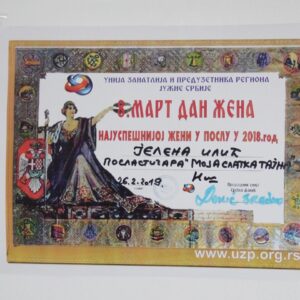 УНИЈА ЗАНАТЛИЈА И ПРЕДУЗЕТНИКА РЕГИОНА
ЈУЖНЕ СРБИЈЕ
8.МАРТ ДАН ЖЕНА
НАЈУСПЕШНИЈОЈ ЖЕНИ У ПОСЛУ У 2018.год
ЈЕЛЕНА ИЛИЋ
ПОСЛАСТИЧАРА "МОЈА СЛАТКА ТАЈНА
26.2.2019.
www.uzp.org.rs